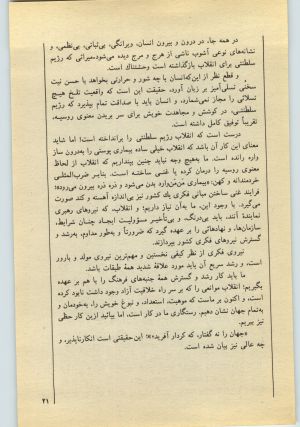 در همه جا، در درون و بیرون انسان، ویرانگی، بی‌ثباتی، بی‌نظمی، و
نشانه‌های نوعی آشوب ناشی از هرج و مرج دیده می‌شود. میراثی که رژیم
سلطنتی برای انقلاب بازگذاشته است وحشتناک است.
و قطع نظر از این‌که‌انسان با چه شور و حرارتی بخواهد یا حسن نیت
سخنی تسلی‌آمیز بر زبان آورد، حقیقت این است که واقعیت تاریخ هیچ
تسلائی را مجاز نمی‌شمارد، و انسان باید با صداقت تمام بپذیرد که رژیم
سلطنتی، در کوشش و مجاهدت خویش برای سر بریدن معنوی روسیه،
تقریباً توفیق کامل داشته است.
درست است که انقلاب رژیم سلطنتی را برانداخته است؛ اما شاید
معنای این کار آن باشد که انقلاب خیلی ساده بیماری پوستی را به‌درون ساز
واره رانده است. ما به‌هیچ وجه نباید چنین بینداریم که انقلاب از لحاظ
معنوی روسیه را درمان کرده یا غنی ساخته است. بنابر ضرب‌المثلی
خردمندانه و کهن: «بیماری من‌من‌وارد بدن می‌شود و ذره ذره بیرون می‌رود»؛
فرایند غنی ساختن مبانی فکری یك کشور نیز بی‌اندازه آهسته و کند صورت
می‌گیرد. با وجود این، ما به‌آن نیاز داریم؛ و انقلاب، که نیروهای رهبری
نمایندهٔ آنند، باید بی‌درنگ، و بی‌تأخیر مسؤولیت ایجاد چنان شرایط،
سازمان‌ها، و نهادهائی را بر عهده گیرد که ضرورتاً و به‌طور مداوم، به‌رشد و
گسترش نیروهای فکری کشور بپردازند.
نیروی فکری از نظر کیفی نخستین و مهم‌ترین نیروی مولد و بارور
است، و رشد سریع آن باید مورد علاقهٔ شدید همهٔ طبقات باشد.
ما باید کار رشد و گسترش همهٔ جنبه‌های فرهنگ را با هم بر عهده
بگیریم؛ انقلاب موانعی را که بر سر راه خلاقیت آزاد وجود داشت نابود کرده
است، و اکنون بر ماست که موهبت، استعداد، و نبوغ خویش را، به‌خودمان و
به‌تمام جهان نشان دهیم. رستگاری ما در کار است، اما بیائید ازین کار حظی
نیز ببریم.
«جهان را نه گفتار، که کردار آفرید»؛ این‌حقیقتی است انکارناپذیر، و
چه عالی نیز بیان شده است.
۳۱